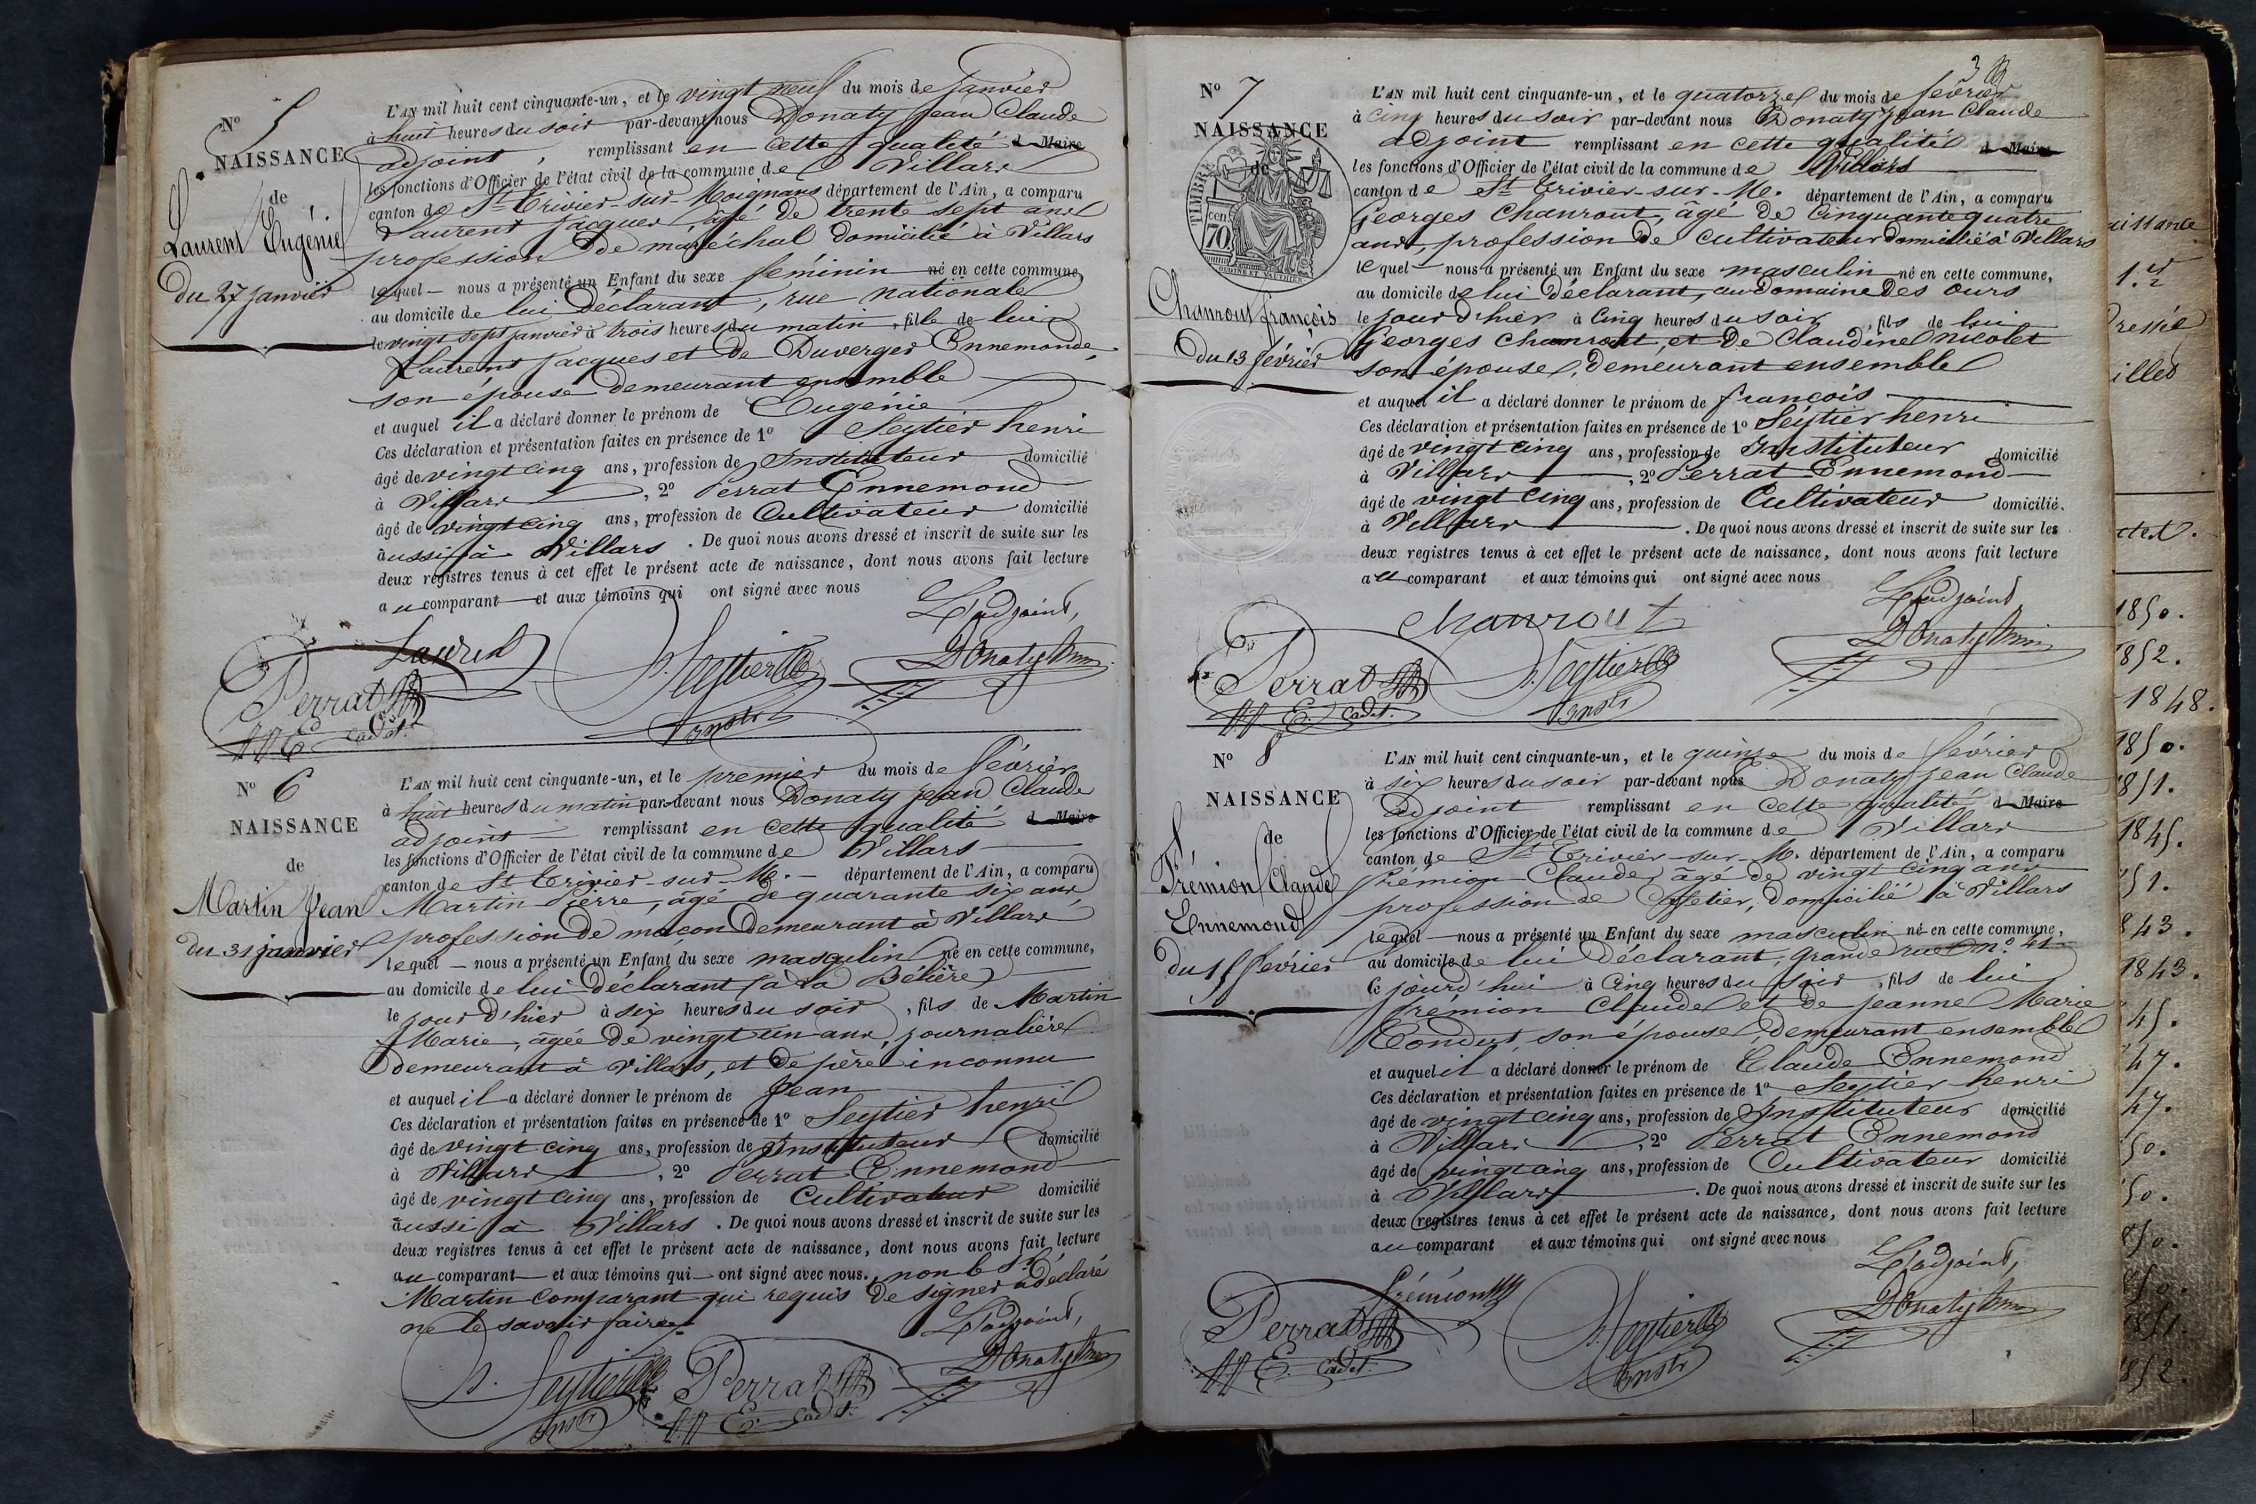 N° 5
NAISSANCE
de
Laurent Eugénie
du 27 janvier
L'AN mil huit cent cinquante-un, et le vingt neuf du mois de janvier
à huit heures du soir par-devant nous Donaty Jean Claude
adjoint, remplissant en cette qualité d Maire
les fonctions d'Officier de l'état civil de la commune de Villars
canton de St Trivier-sur-Moignans département de l'Ain, a comparu
Laurent Jacques, âgé de trente sept ans
profession de maréchal domicilié à Villars
lequel nous a présenté un Enfant du sexe féminin né en cette commune,
au domicile de lui déclarant, rue nationale
le vingt sept janvier à trois heures du matin, fille de lui
Laurent Jacques et de Duverger Ennemonde,
son épouse demeurant ensemble
et auquel il a déclaré donner le prénom de Eugénie
Ces déclaration et présentation faites en présence de 1° Seytier henri
âgé de vingt cinq ans, profession de Instituteur domicilié
à Villars, 2° Perrat Ennemond
âgé de vingt cinq ans, profession de Cultivateur domicilié
aussi à Villars. De quoi nous avons dressé et inscrit de suite sur les
deux registres tenus à cet effet le présent acte de naissance, dont nous avons fait lecture
au comparant et aux témoins qui ont signé avec nous
L'adjoint,
Laurent
Seytier
Donaty
Perrat
E. Cadet.
Instr
N° 6
NAISSANCE
de
Martin Jean
du 31 janvier
L'AN mil huit cent cinquante-un, et le premier du mois de février
à huit heures du matin par-devant nous Donaty jean Claude
adjoint remplissant en cette qualité d Maire
les fonctions d'Officier de l'état civil de la commune de Villars
canton de St Trivier-sur-M. département de l'Ain, a comparu
Martin Pierre, âgé de quarante six ans,
profession de maçon demeurant à Villars
lequel nous a présenté un Enfant du sexe masculin né en cette commune,
au domicile de lui déclarant (à la Bélière)
le jour d'hier à six heures du soir, fils de Martin
Marie, agée de vingt un ans, journalière
demeurant à Villars, et de père inconnu
et auquel il a déclaré donner le prénom de Jean
Ces déclaration et présentation faites en présence de 1° Seytier henri
âgé de vingt cinq ans, profession de Instituteur domicilié
à Villars, 2° Perrat Ennemond
âgé de vingt cinq ans, profession de Cultivateur domicilié
aussi à Villars. De quoi nous avons dressé et inscrit de suite sur les
deux registres tenus à cet effet le présent acte de naissance, dont nous avons fait lecture
au comparant et aux témoins qui ont signé avec nous. non le Sr
Martin comparant qui requis de signer a déclaré
ne le savoir faire
L'adjoint,
Seytier
Perrat
Donaty
Instr
E. Cadet.
3
N° 7
NAISSANCE
de
TIMBRE
70 cen
Chanrout françois
du 13 février
L'AN mil huit cent cinquante-un, et le quatorze du mois de février
à cinq heures du soir par-devant nous Donaty Jean Claude
adjoint remplissant en cette qualité d Maire
les fonctions d'Officier de l'état civil de la commune de Villars
canton de St Trivier-sur-M. département de l'Ain, a comparu
Georges Chanrout, âgé de cinquante quatre
ans, profession de cultivateur domicilié à Villars
lequel nous a présenté un Enfant du sexe masculin né en cette commune,
au domicile de lui déclarant, au domaine des Ours
le jour d'hier à cinq heures du soir, fils de lui
Georges Chanrout, et de Claudine nicolet
son épouse, demeurant ensemble
et auquel il a déclaré donner le prénom de françois
Ces déclaration et présentation faites en présence de 1° Seytier henri
âgé de vingt cinq ans, profession de Instituteur domicilié
à Villars, 2° Perrat Ennemond
âgé de vingt cinq ans, profession de Cultivateur domicilié.
à Villars. De quoi nous avons dressé et inscrit de suite sur les
deux registres tenus à cet effet le présent acte de naissance, dont nous avons fait lecture
au comparant et aux témoins qui ont signé avec nous
L'adjoint
chanrout
Donaty
Perrat
Seytier
E. Cadet.
Instr
N° 8
NAISSANCE
de
Frémion Claude
Ennemond
du 15 février
L'AN mil huit cent cinquante-un, et le quinze du mois de février
à six heures du soir par-devant nous Donaty jean Claude
adjoint remplissant en cette qualité d Maire
les fonctions d'Officier de l'état civil de la commune de Villars
canton de St Trivier-sur-M. département de l'Ain, a comparu
frémion Claude, âgé de vingt cinq ans
profession de Cafetier, domicilié à Villars
lequel nous a présenté un Enfant du sexe masculin né en cette commune,
au domicile de lui déclarant, grande rue n° 41
ce jourd'hui à cinq heures du soir, fils de lui
frémion Claude et de jeanne Marie
Condert, son épouse, demeurant ensemble
et auquel il a déclaré donner le prénom de Claude Ennemond
Ces déclaration et présentation faites en présence de 1° Seytier henri
âgé de vingt cinq ans, profession de Instituteur domicilié
à Villars, 2° Perrat Ennemond
âgé de vingt cinq ans, profession de Cultivateur domicilié
à Villars. De quoi nous avons dressé et inscrit de suite sur les
deux registres tenus à cet effet le présent acte de naissance, dont nous avons fait lecture
au comparant et aux témoins qui ont signé avec nous
L'adjoint,
frémion
Donaty
Perrat
Seytier
E. Cadet.
Instr
1850.
1852.
1848.
1850.
1851.
1845.
51.
843.
1843.
45.
47.
47.
50.
50.
850.
850.
1851.
852.